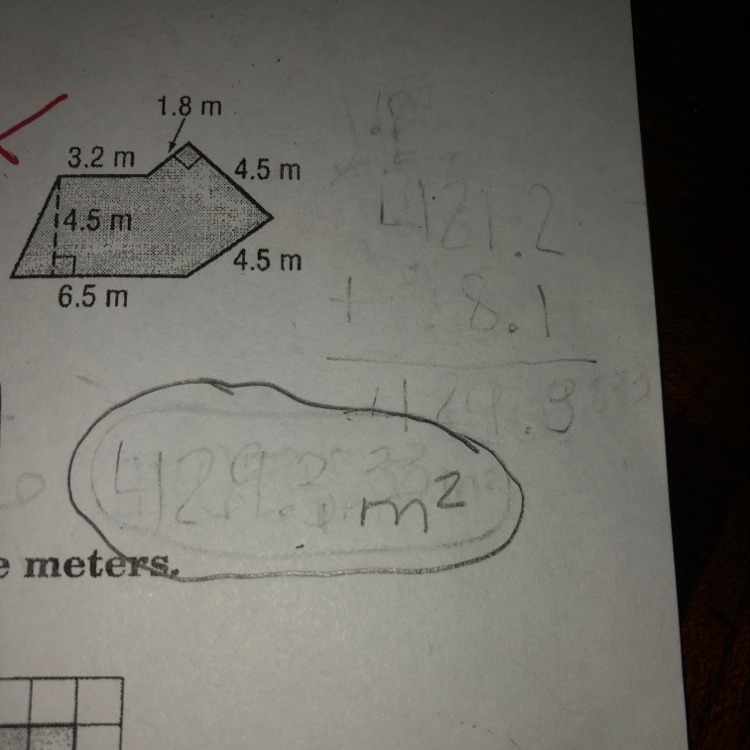 1.8 m
3.2 m
4.5 m
4.5 m
4.5 m
6.5 m
421.2
+ 8.1
429.3
429.3 m²
e meters.